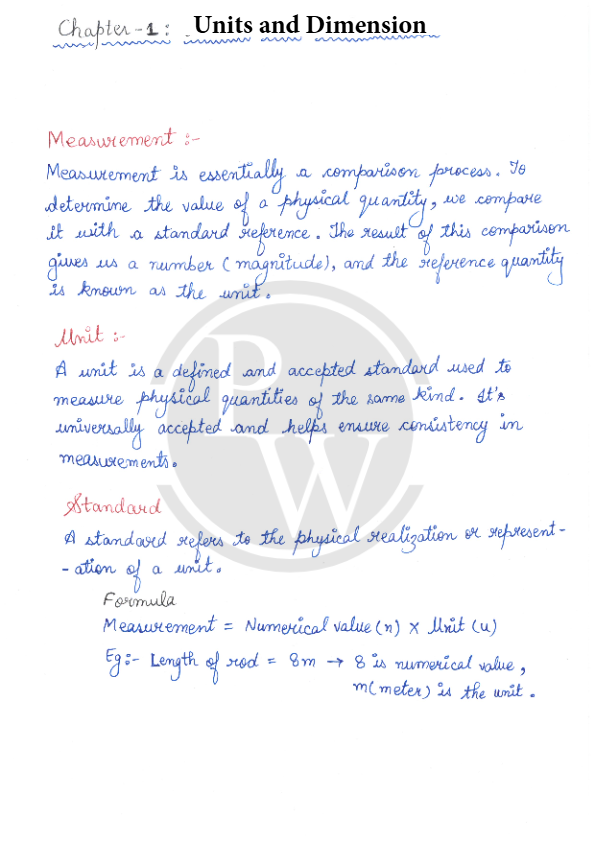 Chapter-1: Units and Dimension
Measurement :-
Measurement is essentially a comparison process. To
determine the value of a physical quantity, we compare
it with a standard reference. The result of this comparison
gives us a number (magnitude), and the reference quantity
is known as the unit.
Unit :-
A unit is a defined and accepted standard used to
measure physical quantities of the same kind. It's
universally accepted and helps ensure consistency in
measurements.
Standard
A standard refers to the physical realization or represent-
-ation of a unit.
Formula
Measurement = Numerical value (n) × Unit (u)
Eg:- Length of rod = 8m → 8 is numerical value,
m(meter) is the unit.
PW